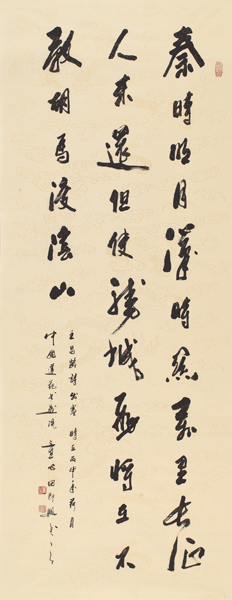 秦時明月漢時關萬里長征
人未還但使龍城飛將在不
教胡馬渡陰山
王昌齡詩出塞 時在丙申年荷月
中國蓮花書畫院